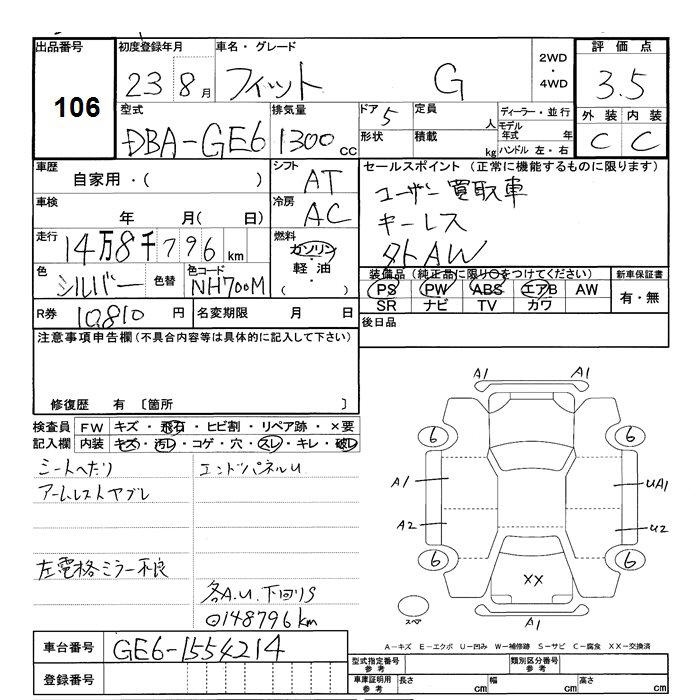 出品番号 106
初度登録年月 23 8月
車名・グレード フィット G
2WD・4WD
評価点 3.5
外装 内装
C C
型式 DBA-GE6
排気量 1300cc
ドア 5
定員 人
形状 積載 kg
ディーラー・並行
モデル年式 年
ハンドル 左・右
車歴 自家用・( )
シフト AT
車検 年 月( 日)
冷房 AC
走行 14万8千796km
燃料 ガソリン・軽油・( )
色 シルバー 色替 色コード NH700M
R券 10,810円
名変期限 月 日
セールスポイント (正常に機能するものに限ります)
ユーザー買取車
キーレス
タトAW
装備品 (純正品に限り○をつけてください)
PS PW ABS エアB AW
SR ナビ TV カワ
新車保証書
有・無
後日品
注意事項申告欄 (不具合内容等は具体的に記入して下さい)
修復歴 有 〔箇所 〕
検査員記入欄
FW キズ・飛石・ヒビ割・リペア跡・×要
内装 キズ・汚レ・コゲ・穴・スレ・キレ・破レ
シートへたり
アームレストヤブレ
左電格ミラー不良
エンドパネルU
各A.U.下回りS
◎148796km
A1 A1
6 6
A1 UA1
A2 U2
6 6
XX
スペ
A1
A−キズ E−エクボ U−凹み W−補修跡 S−サビ C−腐食 XX−交換済
車台番号 GE6-1554214
登録番号
型式指定番号 参考
類別区分番号 参考
車庫証明用 参考
長さ cm 幅 cm 高さ cm